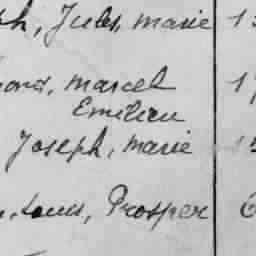 ph, Jules, marie 1
mond, marcel 1
Emilien
Joseph, marie 1
Louis, Prosper 6